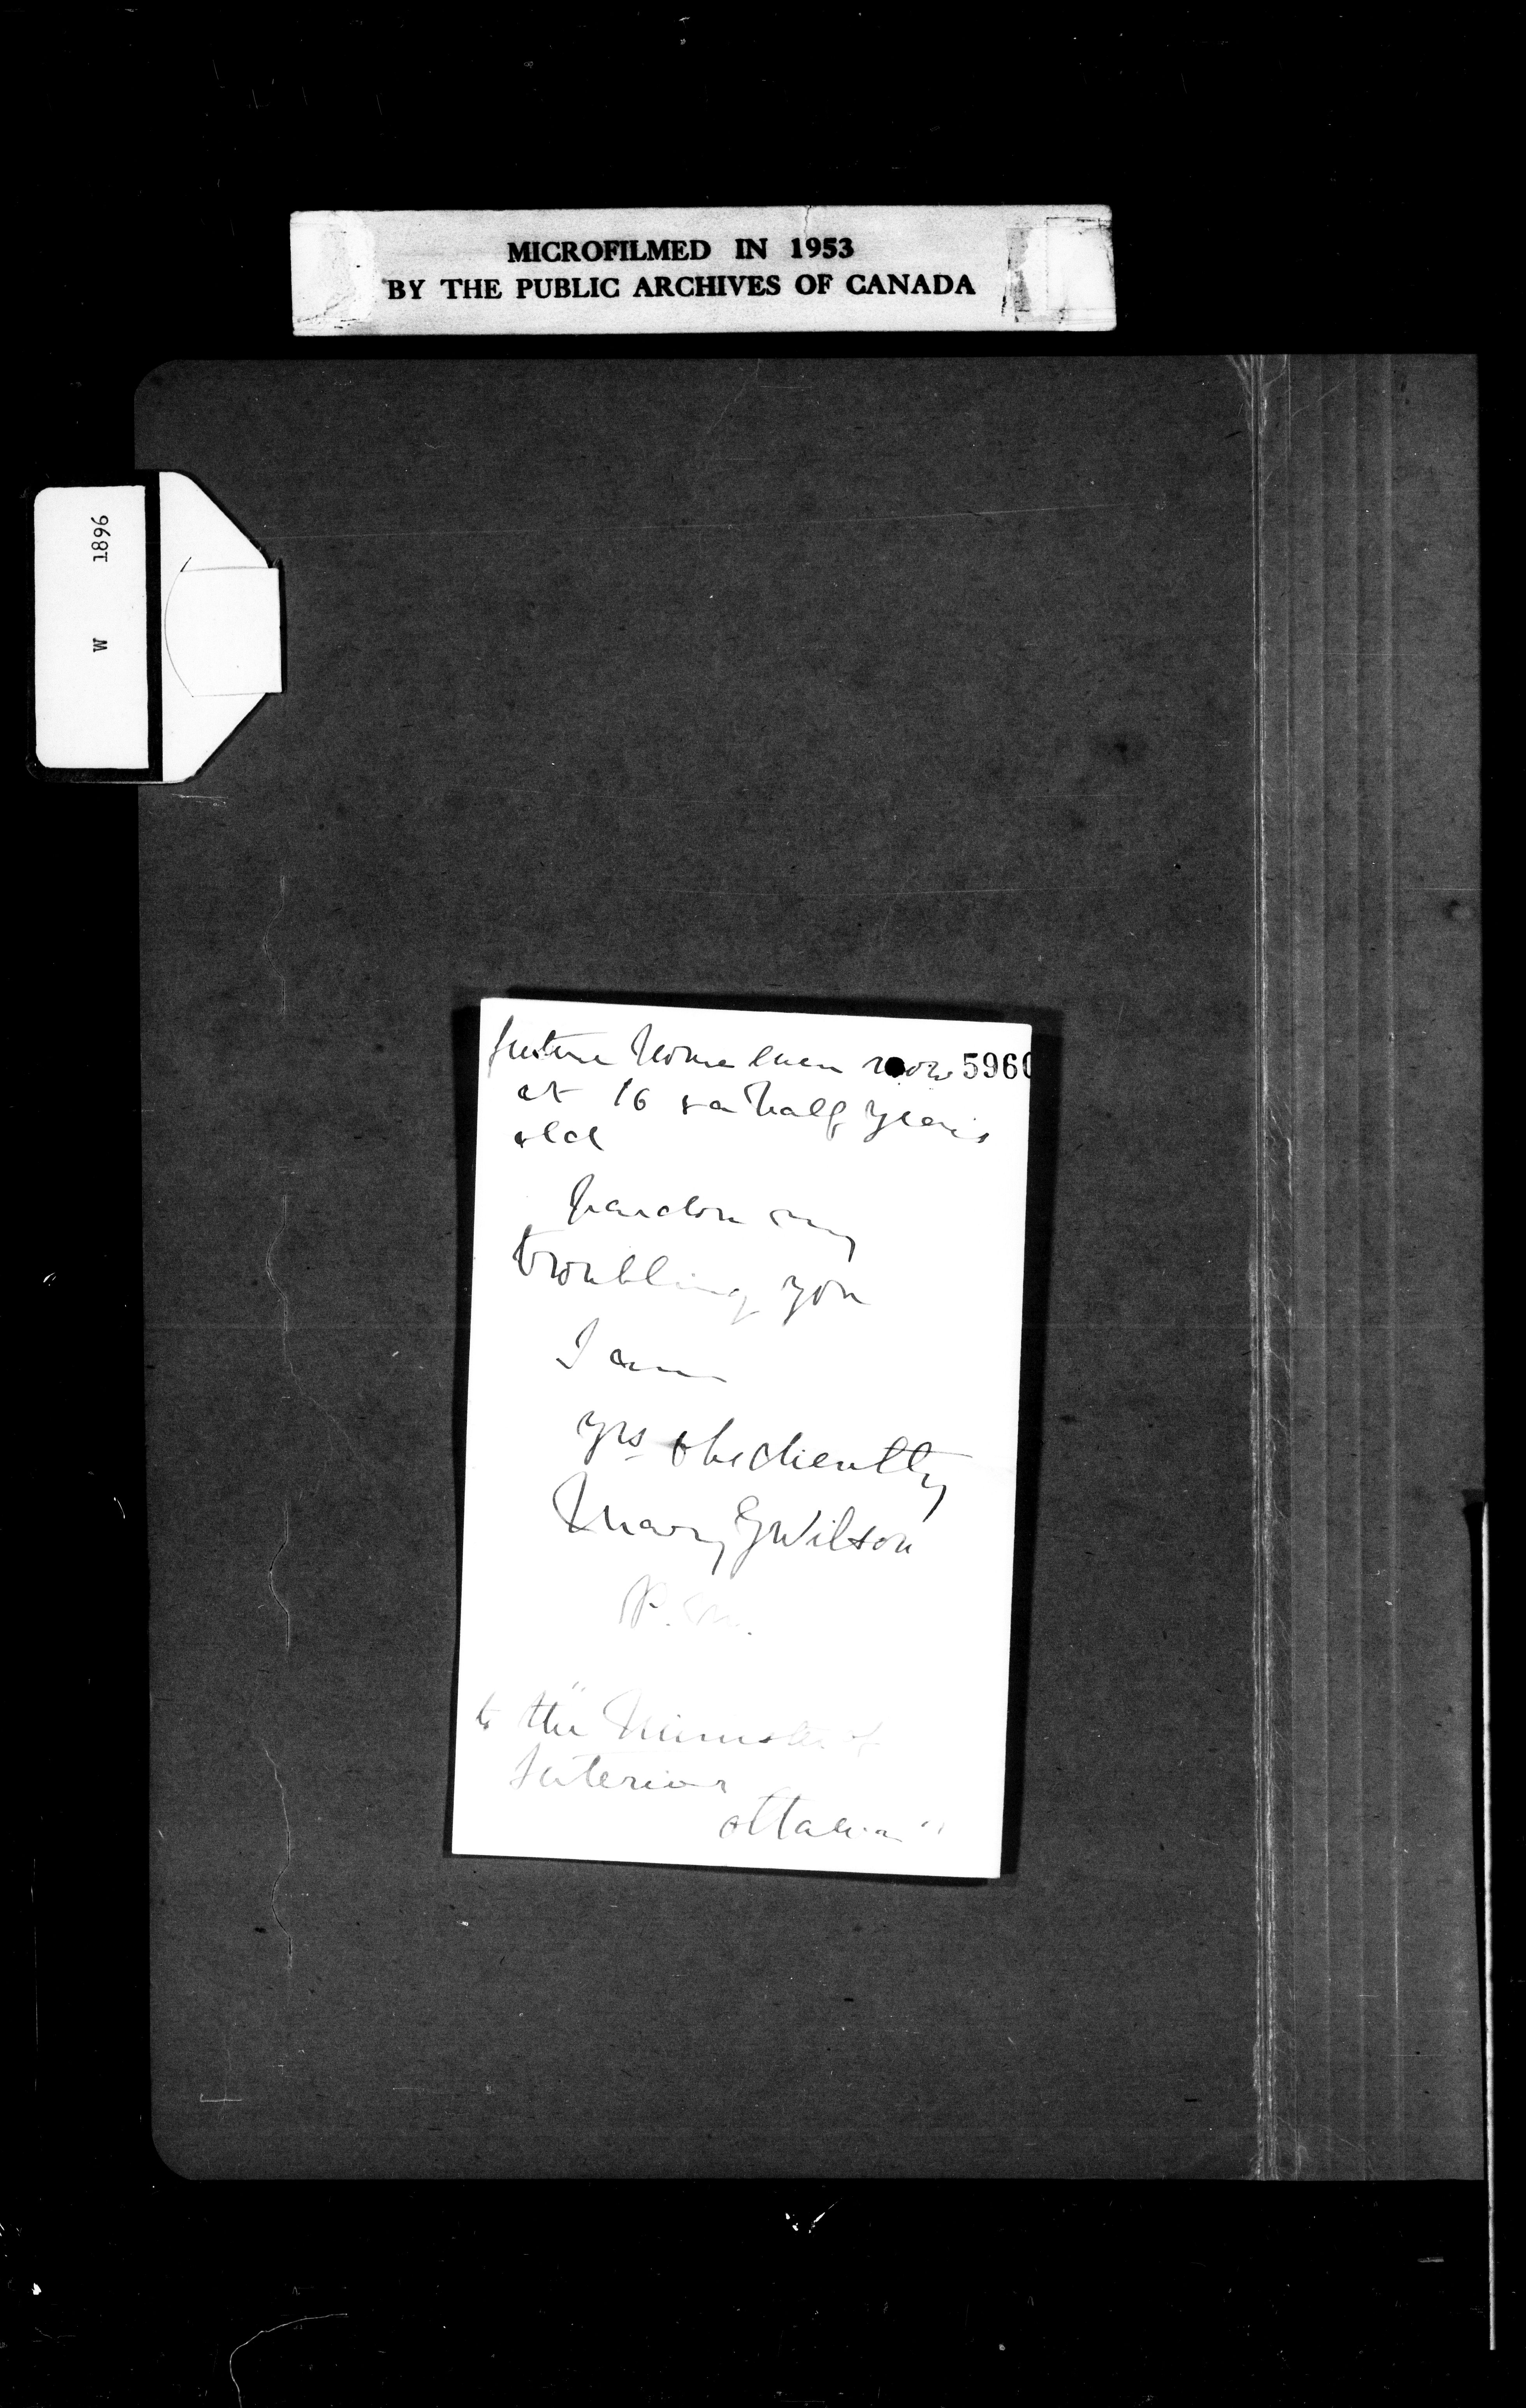 MICROFILMED IN 1953
BY THE PUBLIC ARCHIVES OF CANADA
W 1896
future home even now 5960
at 16 & a half years
old
Pardon my
troubling you
I am
yrs obediently
Mary G Wilson
P.M.
to the "Minister of
Interior
Ottawa"